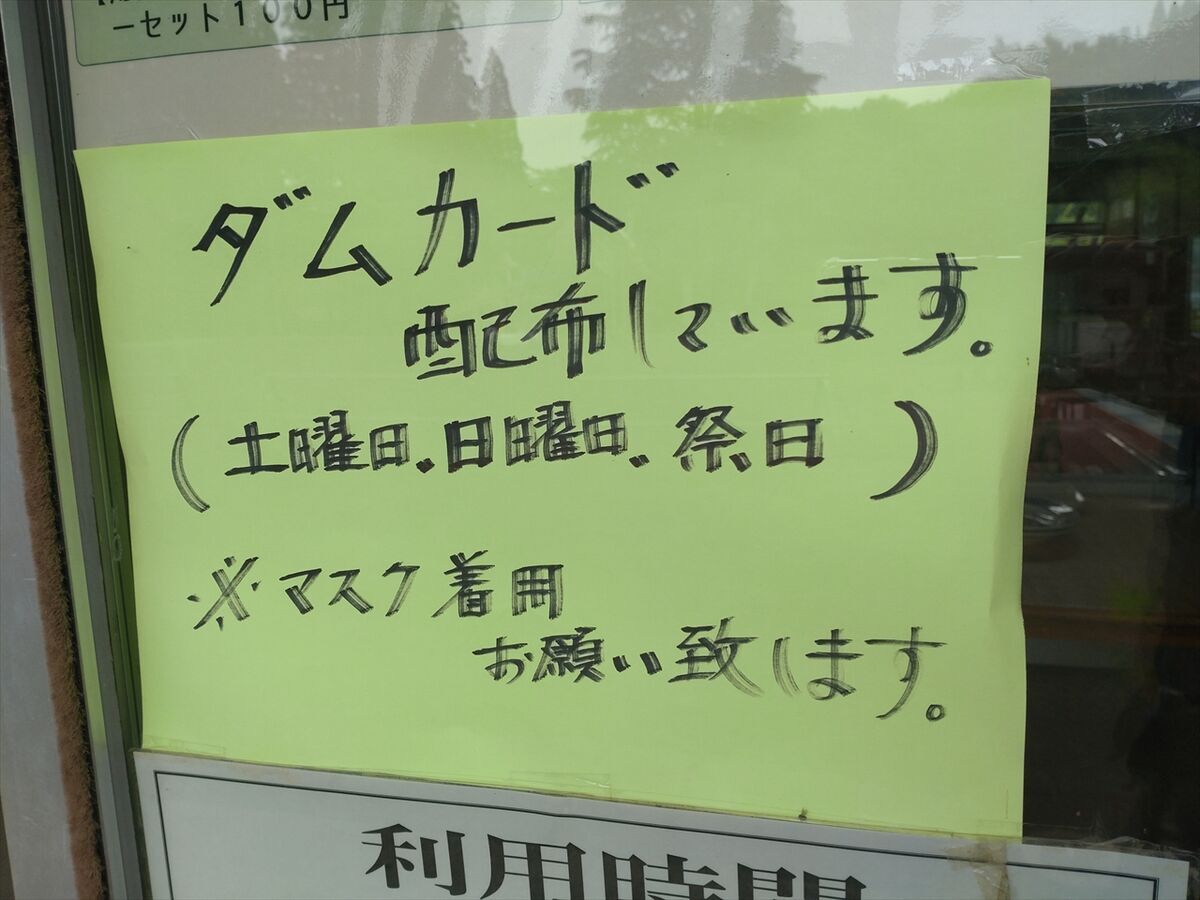 ーセット100円
ダムカード
配布しています。
(土曜日.日曜日.祭日)
※マスク着用
お願い致します。
利用時間